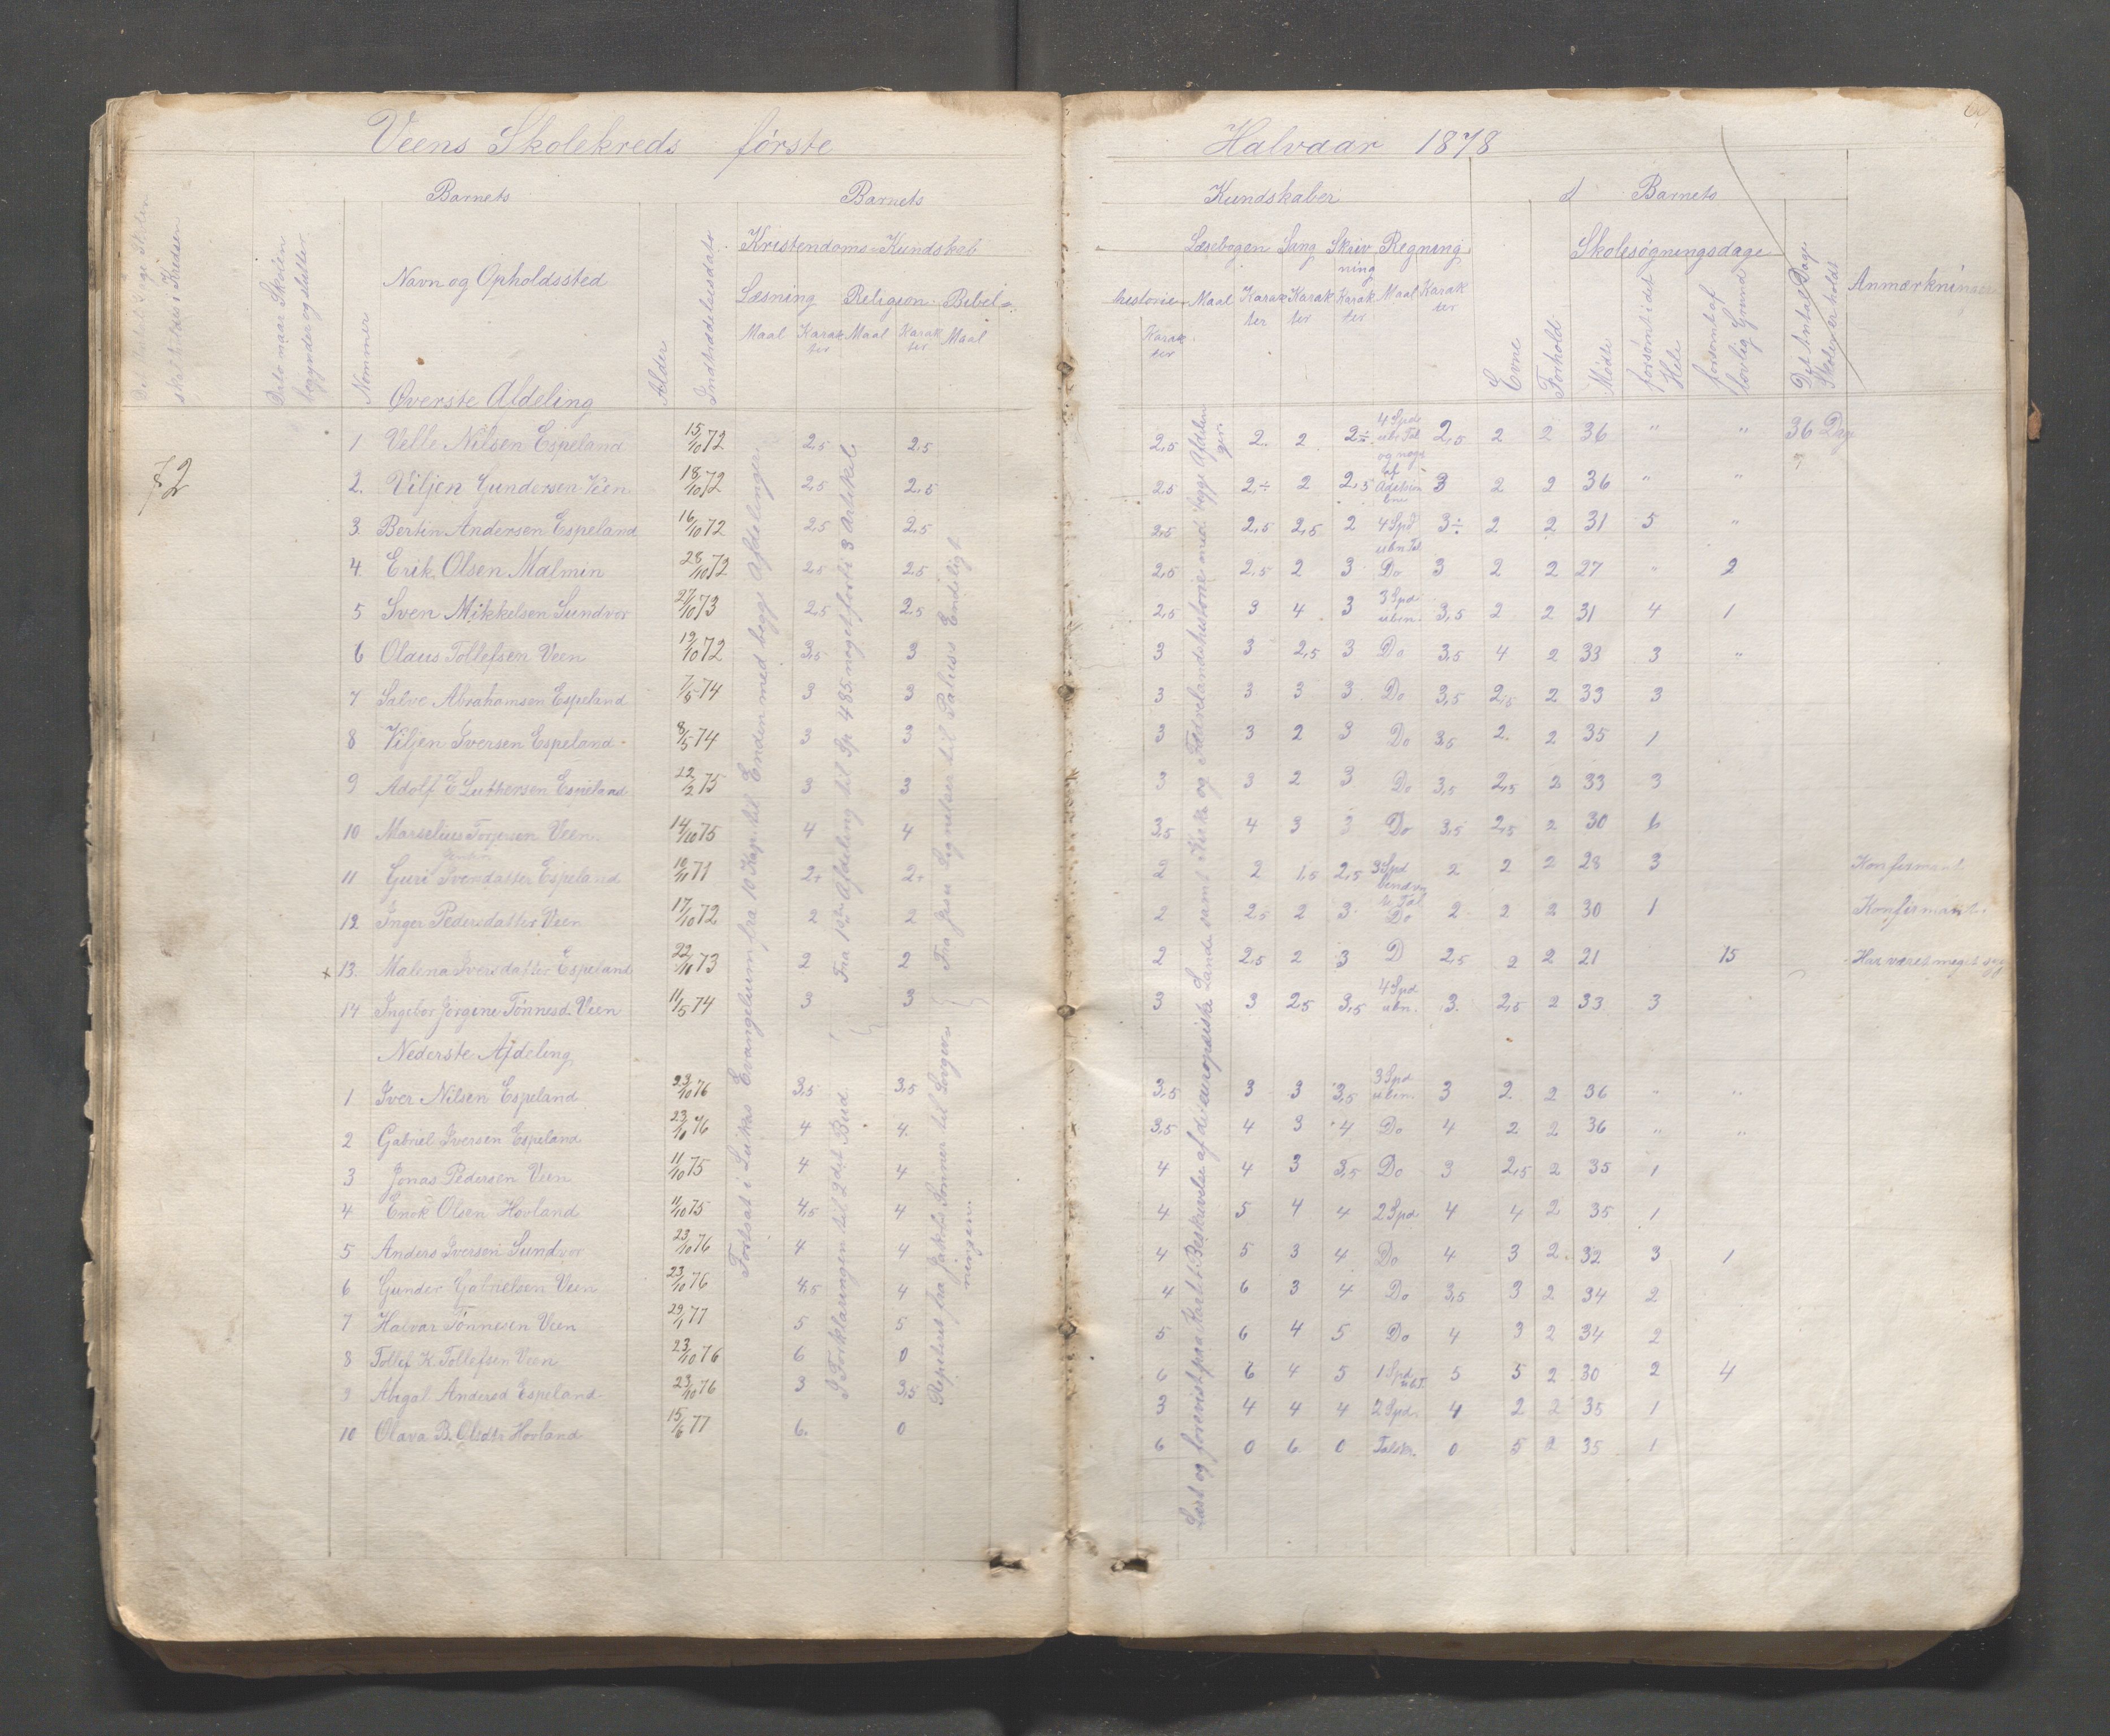 Veens Skolekreds første Halvaar 1878
Barnets Barnets Kundskaber Barnets
Kristendoms-Kundskab Læsebogen Sang Skrivning Regning Skolesøgningsdage
skal holdes i Kredsen
Dato naar Skolen begynder og slutter
Nommer
Navn og Opholdssted
Alder
Indtrædelsesdato
Læsning Religion Bibelhistorie
Maal Karakter Maal Karakter Maal Karakter Maal Karakter Karakter Karakter Maal Karakter
Evne
Forhold
Mødt
forsømt i det Hele
forsømt af lovlig Grund
Det Antal Dage Skolen er holdt
Anmærkninger
Øverste Afdeling
72
1 Velle Nilsen Espeland 15/10 72 2,5 2,5 2,5 2. 2 2÷ 4 Spd ubn Tal og noget af 2,5 2 2 36 " " 36 Dag
2. Viljen Gundersen Veen 18/10 72 2,5 2,5 2,5 2,÷ 2 2,5 3 2 2 36 " "
3 Bertin Andersen Espeland 16/10 72 2,5 2,5 2,5 2,5 2,5 2 4 Spd ubn Tal 3÷ 2 2 31 5 "
4 Erik Olsen Malmin 28/10 72 2,5 2,5 2,5 2,5 2 3 Do 3 2 2 27 " 2
5 Sven Mikkelsen Sundvor 27/10 73 2,5 2,5 2,5 3 4 3 3 Spd ubn. 3,5 2 2 31 4 1
6 Olaus Tollefsen Veen 19/10 72 3,5 3 3 3 2,5 3 Do 3,5 4 2 33 3 "
7 Salve Abrahamsen Espeland 7/5 74 3 3 3 3 3 3 Do 3,5 2,5 2 33 3
8 Viljen Iversen Espeland 8/5 74 3 3 3 3 2 3 Do 3,5 2. 2 35 1
9 Adolf E Luthersen Espeland 22/2 75 3 3 3 3 2 3 Do 3,5 2,5 2 33 3
10 Marselius Torjersen Veen 14/10 75 4 4 3,5 4 3 3 Do 3,5 2,5 2 30 6
11 Guri Svendatter Espeland 71 2÷ 2÷ 2 2 1,5 2,5 3 Spd 2 2 2 28 3 Konfirmant
12 Inger Pedersdatter Veen 17/10 72 2 2 2 2,5 2 3 Do 2 2 2 30 1 Konfirmant
+ 13. Malena Iversdatter Espeland 22/10 73 2 2 2 2,5 2 3 D 2,5 2 2 21 15 Har været meget syg
14 Ingebor Jørgine Tønnesd. Veen 11/5 74 3 3 3 3 2,5 3,5 4 Spd ubn. 3. 2,5 2 33 3
Nederste Afdeling
1 Iver Nilsen Espeland 23/10 76 3,5 3,5 3,5 3 3 3,5 3 Spd ubn. 3 2. 2 36 " "
2 Gabriel Iversen Espeland 23/10 76 4 4 3,5 4 3 4 Do 4 2 2 36 " "
3 Jonas Pedersen Veen 11/10 75 4 4 4 4 3 3,5 Do 3 2,5 2 35 1
4 Enok Olsen Hovland 11/10 75 4,5 4 4 5 4 4 2 Spd 4 4 2 35 1
5 Anders Iversen Sundvor 23/10 76 4 4 4 5 3 4 Do 4 3 2. 32 3 1
6 Gunder Gabrielsen Veen 23/10 76 4,5 4 4 6 3 4 Do 3,5 3 2 34 2
7 Halvar Tønnesen Veen 29/1 77 5 5 5 6 4 5 Do 4 3 2 34 2
8 Tollef K Tollefsen Veen 23/10 76 6 0 6 6 4 5 1 Spd ubT. 5 5 2 30 2 4
9 Abigal Andersd Espeland 23/10 76 3 3,5 3 4 4 4 2 Spd. 4 2 2 35 1
10 Olava B. Olsdtr Hovland 15/6 77 6. 0 6 0 6 0 Talskr. 0 5 2 35 1
Fortsat i Lukas Evangelium fra 10 Kap. til Enden med begge Afdelinger
Fra 1ste Afdeling til Sp 485 noget forbi 3 Artikel
I Forklaringen til 2det Bud
Fra Jesu Lignelser til Paulus's Endeligt
Repetert fra Jakobs Sønner til Lovgivningen
Læst og forevist paa Kartet Beskrivelse af de europæiske Lande samt Kirke og Fædrelandshistorie med begge Afdelinger